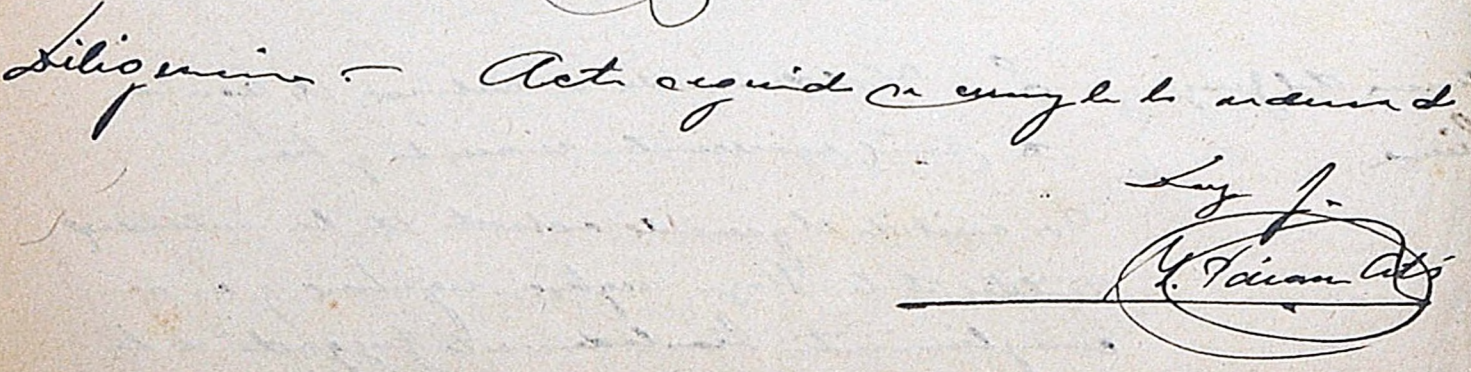 Diligencia.- Acto seguido se cumple lo ordenado
Doy fe.